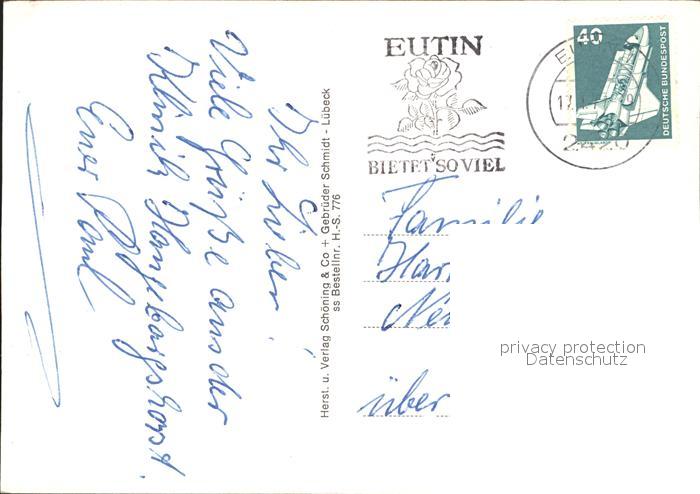 Ihr Lieben!
Viele Grüße aus der
Klinik
Euer Paul
Herst. u. Verlag Schöning & Co + Gebrüder Schmidt - Lübeck
ss Bestellnr. H.-S. 776
EUTIN
BIETET SO VIEL
17.
2420
40
DEUTSCHE BUNDESPOST
Familie
über
privacy protection
Datenschutz